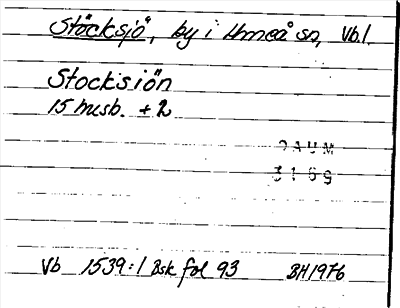 Stöcksjö, by i Umeå sn, Vb.l.
Stocksiön
15 husb. + 2
DAUM
3169
Vb 1539:1 Bsk fol 93 BH 1976